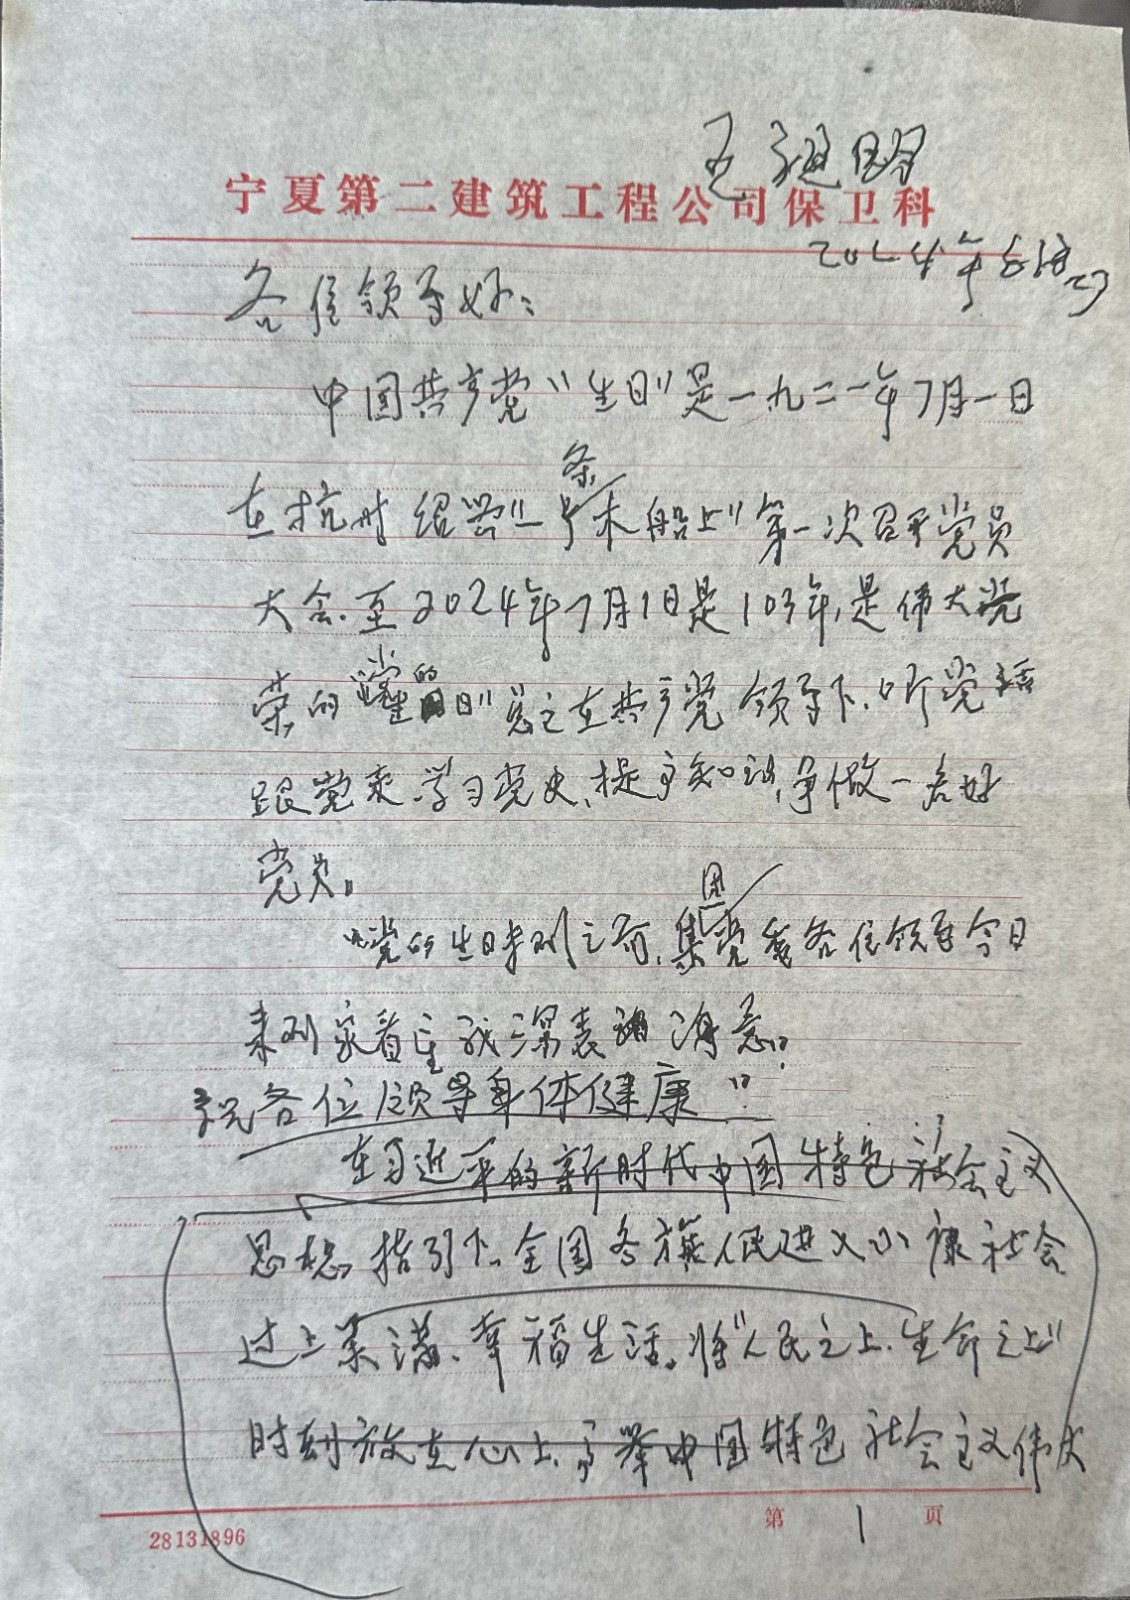 宁夏第二建筑工程公司保卫科
2024年6月27
各位领导好:
中国共产党“生日”是一九二一年7月一日
条
在杭州绍兴“一木船上”第一次召开党员
大会.至2024年7月1日是103年,是伟大党
的
荣的日”总之在共产党领导下.听党话
跟党走.学习党史、提高知识,争做一名好
党员。
团
“党的生日来到之前,集党委各位领导今日
来到家看望我深表谢意”
祝各位领导身体健康”
在习近平的新时代中国特色社会主义
思想指引下.全国各族人民进入小康社会
过上美满、幸福生活。将“人民之上.生命之上”
时刻放在心上.高举中国特色社会主义伟大
28131896 第 1 页